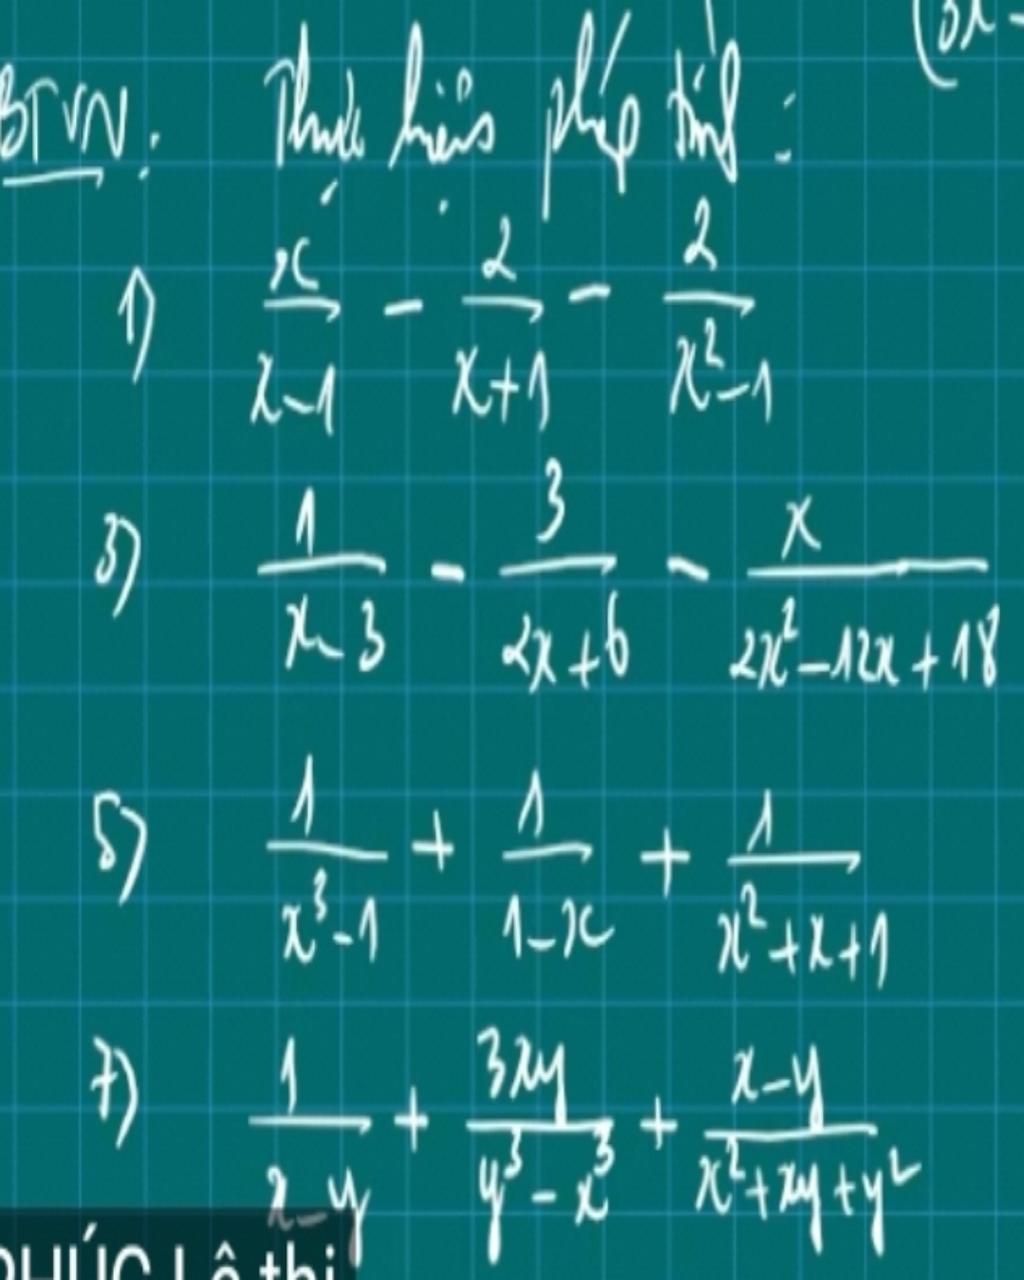 (3x -
BTVN: Thực hiện phép tính:
1) x/(x-1) - 2/(x+1) - 2/(x²-1)
3) 1/(x-3) - 3/(2x+6) - x/(2x²-12x+18)
5) 1/(x³-1) + 1/(1-x) + 1/(x²+x+1)
7) 1/(x-y) + 3xy/(y³-x³) + (x-y)/(x²+xy+y²)
PHÚC Lê thị